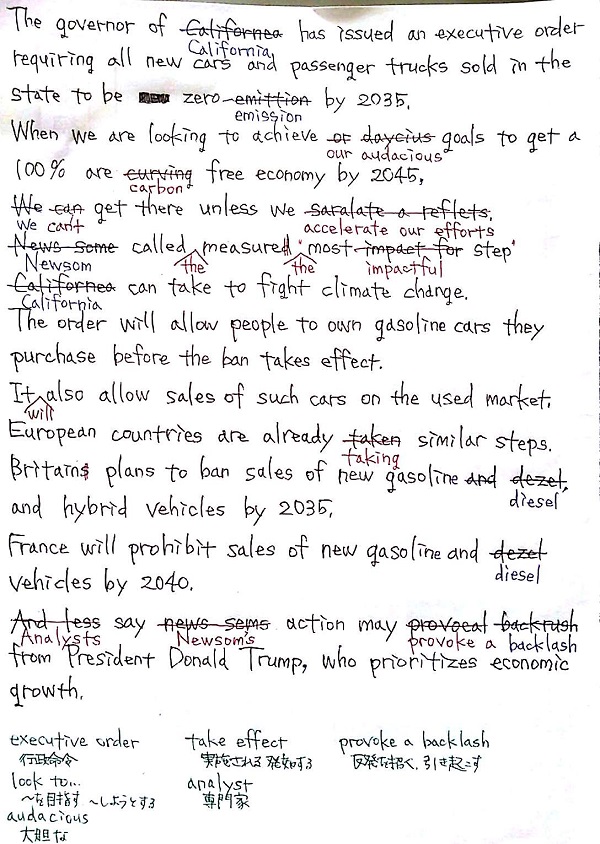 The governor of Californea has issued an executive order
California
requiring all new cars and passenger trucks sold in the
state to be zero emittion by 2035.
emission
When we are looking to achieve or daycius goals to get a
our audacious
100% are curving free economy by 2045,
carbon
We can get there unless we saralate a reflets.
we can't accelerate our efforts
News some called measured "most impact for step"
Newsom the the impactful
Californea can take to fight climate change.
California
The order will allow people to own gasoline cars they
purchase before the ban takes effect.
It also allow sales of such cars on the used market.
will
European countries are already taken similar steps.
taking
Britains plans to ban sales of new gasoline and dezel,
diesel
and hybrid vehicles by 2035.
France will prohibit sales of new gasoline and dezel
diesel
vehicles by 2040.
And less say news sems action may provocal backrush
Analysts Newsom's provoke a backlash
from President Donald Trump, who prioritizes economic
growth.
executive order take effect provoke a backlash
行政命令 実施される 発効する 反発を招く、引き起こす
look to... analyst
〜を目指す 〜しようとする 専門家
audacious
大胆な